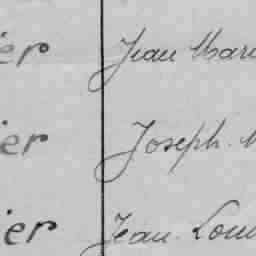 ier Jean Mari
ier Joseph. M
ier Jean. Loui